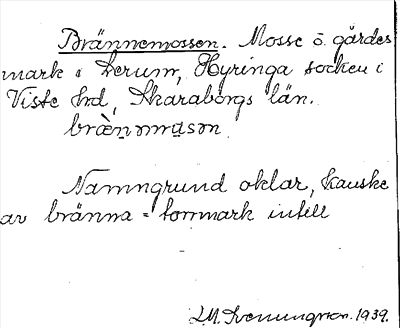 Brännemossen. Mosse ö. gärdes
mark i Lerum, Hyringa socken i
Viste hd, Skaraborgs län.
Namngrund oklar, kanske
av bränna = tommark intill
1939.